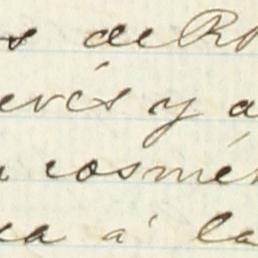 s de RR
evés y a
a cosmé
a á la